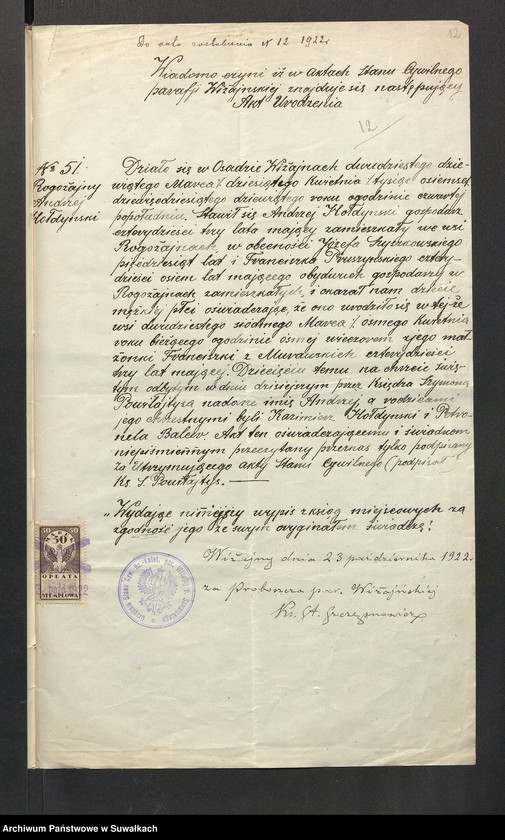 Do aktu zaślubienia № 12 1922 r
12
Wiadomo czyni iż w aktach Stanu Cywilnego
parafji Wiżajnskiej znajduje się następujący
Akt Urodzenia
12
№ 51.
Rogożajny
Andrzej
Hołdynski
Działo się w Osadzie Wiżajnach dwudziestego dzie-
wiątego Marca /. dziesiątego Kwietnia / tysiąc ośiemset
dziewięćdziesiątego dziewiątego roku o godzinie czwartej
popołudniu. Stawił się Andrzej Hołdynski gospodarz
czterydzieści trzy lata mający zamieszkały we wsi
Rogożajnach, w obecności Józefa Szyszkowskiego
pięćdziesiąt lat i Franciszka Pruszyńskiego cztery-
dzieści osiem lat mającego obydwuch gospodarzy w
Rogożajnach zamieszkałych, i okazał nam dziecię
męzkiej płci oświadczając, że ono urodziło się w tej-że
wsi dwudziestego siódmego Marca /. ósmego Kwietnia
roku bieżącego o godzinie ósmej wieczorem z jego mał-
żonki Franciszki z Murauskich czterydzieści
trzy lat mającej. Dziecięciu temu na chrzcie świę-
tym odbytym w dniu dzisiejszym przez Księdza Szymona
Powiłajtysa nadane imię Andrzej, a rodzicami
jego chrzestnymi byli Kazimierz Hołdynski i Petro-
nela Balcew. Akt ten oświadczającemu i świadkom
niepiśmiennym przeczytany przez nas tylko podpisany
za Utrzymującego akty Stanu Cywilnego (podpisał
Ks. S. Powiłajtys.
„Wydając niniejszy wypis z ksiąg miejscowych za
zgodność jego ze swym oryginałem świadczę!
Wiżajny dnia 23 października 1922 r
za Proboszcza par. Wiżajńskiej
Ks. St.
50 50
50
OPŁATA
STEMPLOWA
Archiwum Państwowe w Suwałkach